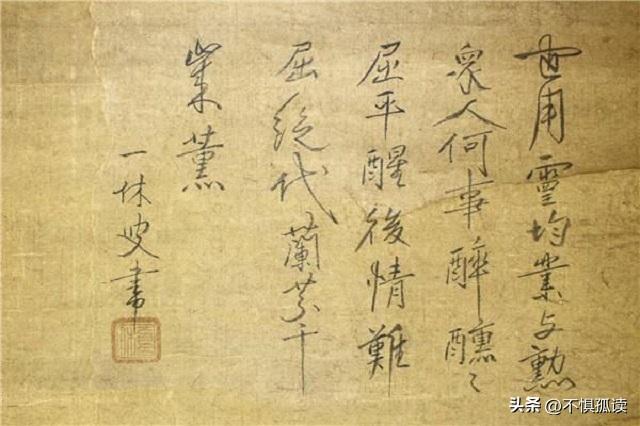 世用靈均業与勲
衆人何事醉醺〻
屈平醒後情難
屈絶代蘭芳千
薰
一休叟書
头条 @不惧孤读